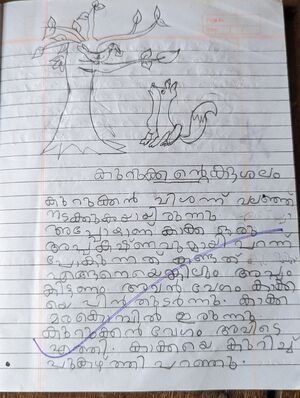 കുറുക്കന്റെ കൗശലം
കുറുക്കൻ വിശന്ന് വലഞ്ഞ്
നടക്കുകയായിരുന്നു
അപ്പോഴാണ് കാക്ക ഒരു
അപ്പകഷ്ണവുമായി പറന്ന്
പോകുന്നത് കണ്ടത്
എങ്ങനെയെങ്കിലും അപ്പം
കിട്ടണം അവൻ വേഗം കാക്ക
യെ പിൻതുടർന്നു. കാക്ക
മരക്കൊമ്പിൽ ഇരുന്നു
കുറുക്കൻ വേഗം അവിടെ
എത്തി. കാക്കയെ കുറിച്ച്
പുകഴ്ത്തി പറഞ്ഞു.